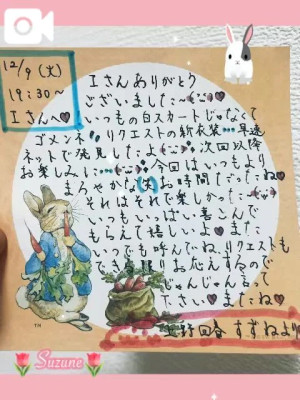 12/9(火)
19:30~
Iさんへ♡
Iさんありがとう
ございました~
いつもの白スカートじゃなくて
ゴメンネ リクエストの新衣装…早速
ネットで発見したよ 次回以降
お楽しみに… 今回はいつもより
まろやか(笑)お時間だったね♥
それはそれで楽しかった~
いつもいっぱい喜こんで
もらえて嬉しいよ♥また
いつでも呼んでね、リクエストも
できる限りお応えするので
じゃんじゃん言って
下さい♥またね♥
すずねより
TM
Suzune